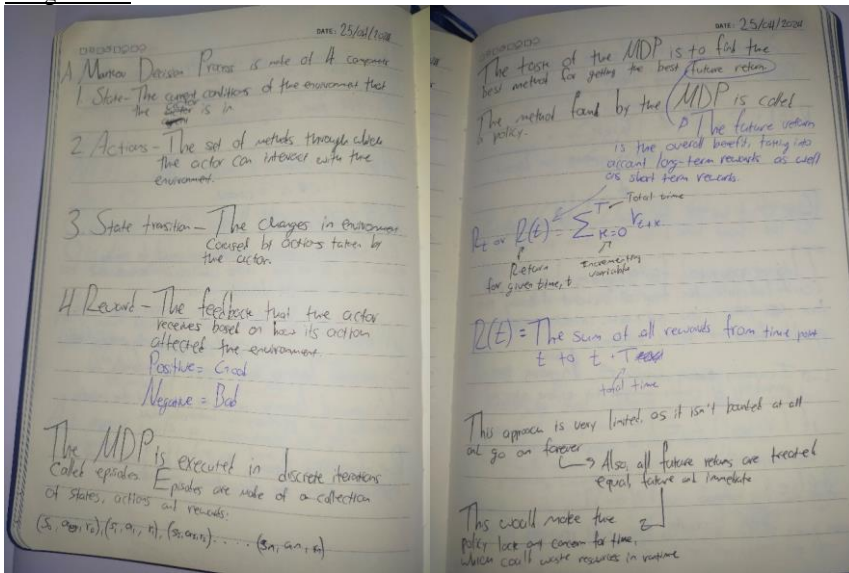 DATE: 25/04/2024
A Markov Decision Process is made of 4 components
1 State - The current conditions of the environment that
the actor is in
2 Actions - The set of methods through which
the actor can interact with the
environment.
3 State transition - The changes in environment
caused by actions taken by
the actor.
4 Reward - The feedback that the actor
receives based on how its action
affected the environment
Positive = Good
Negative = Bad
The MDP is executed in discrete iterations
called episodes Episodes are made of a collection
of states, actions and rewards.
DATE: 25/04/2024
The task of the MDP is to find the
best method for getting the best future return
The method found by the MDP is called
a policy.
The future return
is the overall benefit, taking into
account long-term rewards as well
as short term rewards.
Total time
Rt or R(t) = Σ T K=0 rt+k
Return
for given time, t
Incrementing
variable
R(t) = The sum of all rewards from time point
t to t + T
total time
This approach is very limited, as it isn't bounded at all
and go on forever
Also, all future returns are treated
equal, future and immediate
This would make the
policy lack any concern for time,
which could waste resources in runtime